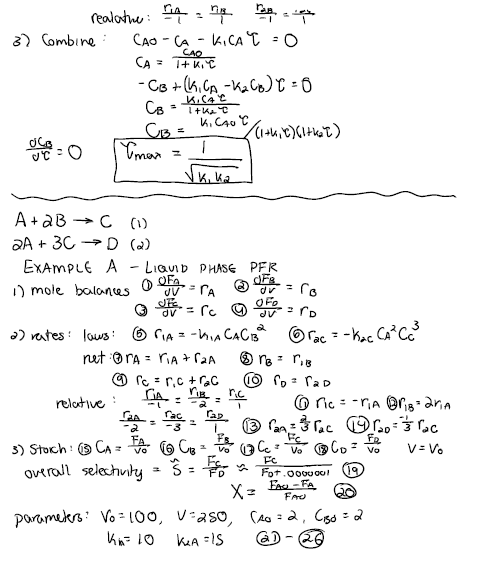 realative: r1A/-1 = r1B/1 r2B/-1 =
3) Combine: CAO - CA - K1CA τ = 0
CA = CAO/1+K1τ
-CB + (K1CA - K2CB) τ = 0
CB = K1CAτ/1+K2τ
CB = K1CAOτ/(1+K1τ)(1+K2τ)
dCB/dτ = 0 τmax = 1/√K1K2
A + 2B → C (1)
2A + 3C → D (2)
EXAMPLE A - LIQUID PHASE PFR
1) mole balances ① dFA/dV = rA ② dFB/dV = rB
③ dFC/dV = rC ④ dFD/dV = rD
2) rates: laws: ⑤ r1A = -K1A CACB² ⑥ r2C = -K2C CA²CC³
net: ⑦ rA = r1A + r2A ⑧ rB = r1B
⑨ rC = r1C + r2C ⑩ rD = r2D
relative: r1A/-1 = r1B/-2 = r1C/1 ⑪ r1C = -r1A ⑫ r1B = 2r1A
r2A/-2 = r2C/-3 = r2D/1 ⑬ r2A = 2/3 r2C ⑭ r2D = -1/3 r2C
3) Stoich: ⑮ CA = FA/V0 ⑯ CB = FB/V0 ⑰ CC = FC/V0 ⑱ CD = FD/V0 V = V0
overall selectivity = S̃ = FC/FD ≈ FC/FD+.0000001 ⑲
X = FAO - FA/FAO ⑳
parameters: V0 = 100, V = 250, CAO = 2, CBO = 2
K1A = 10 K2A = 15 ㉑ - ㉖